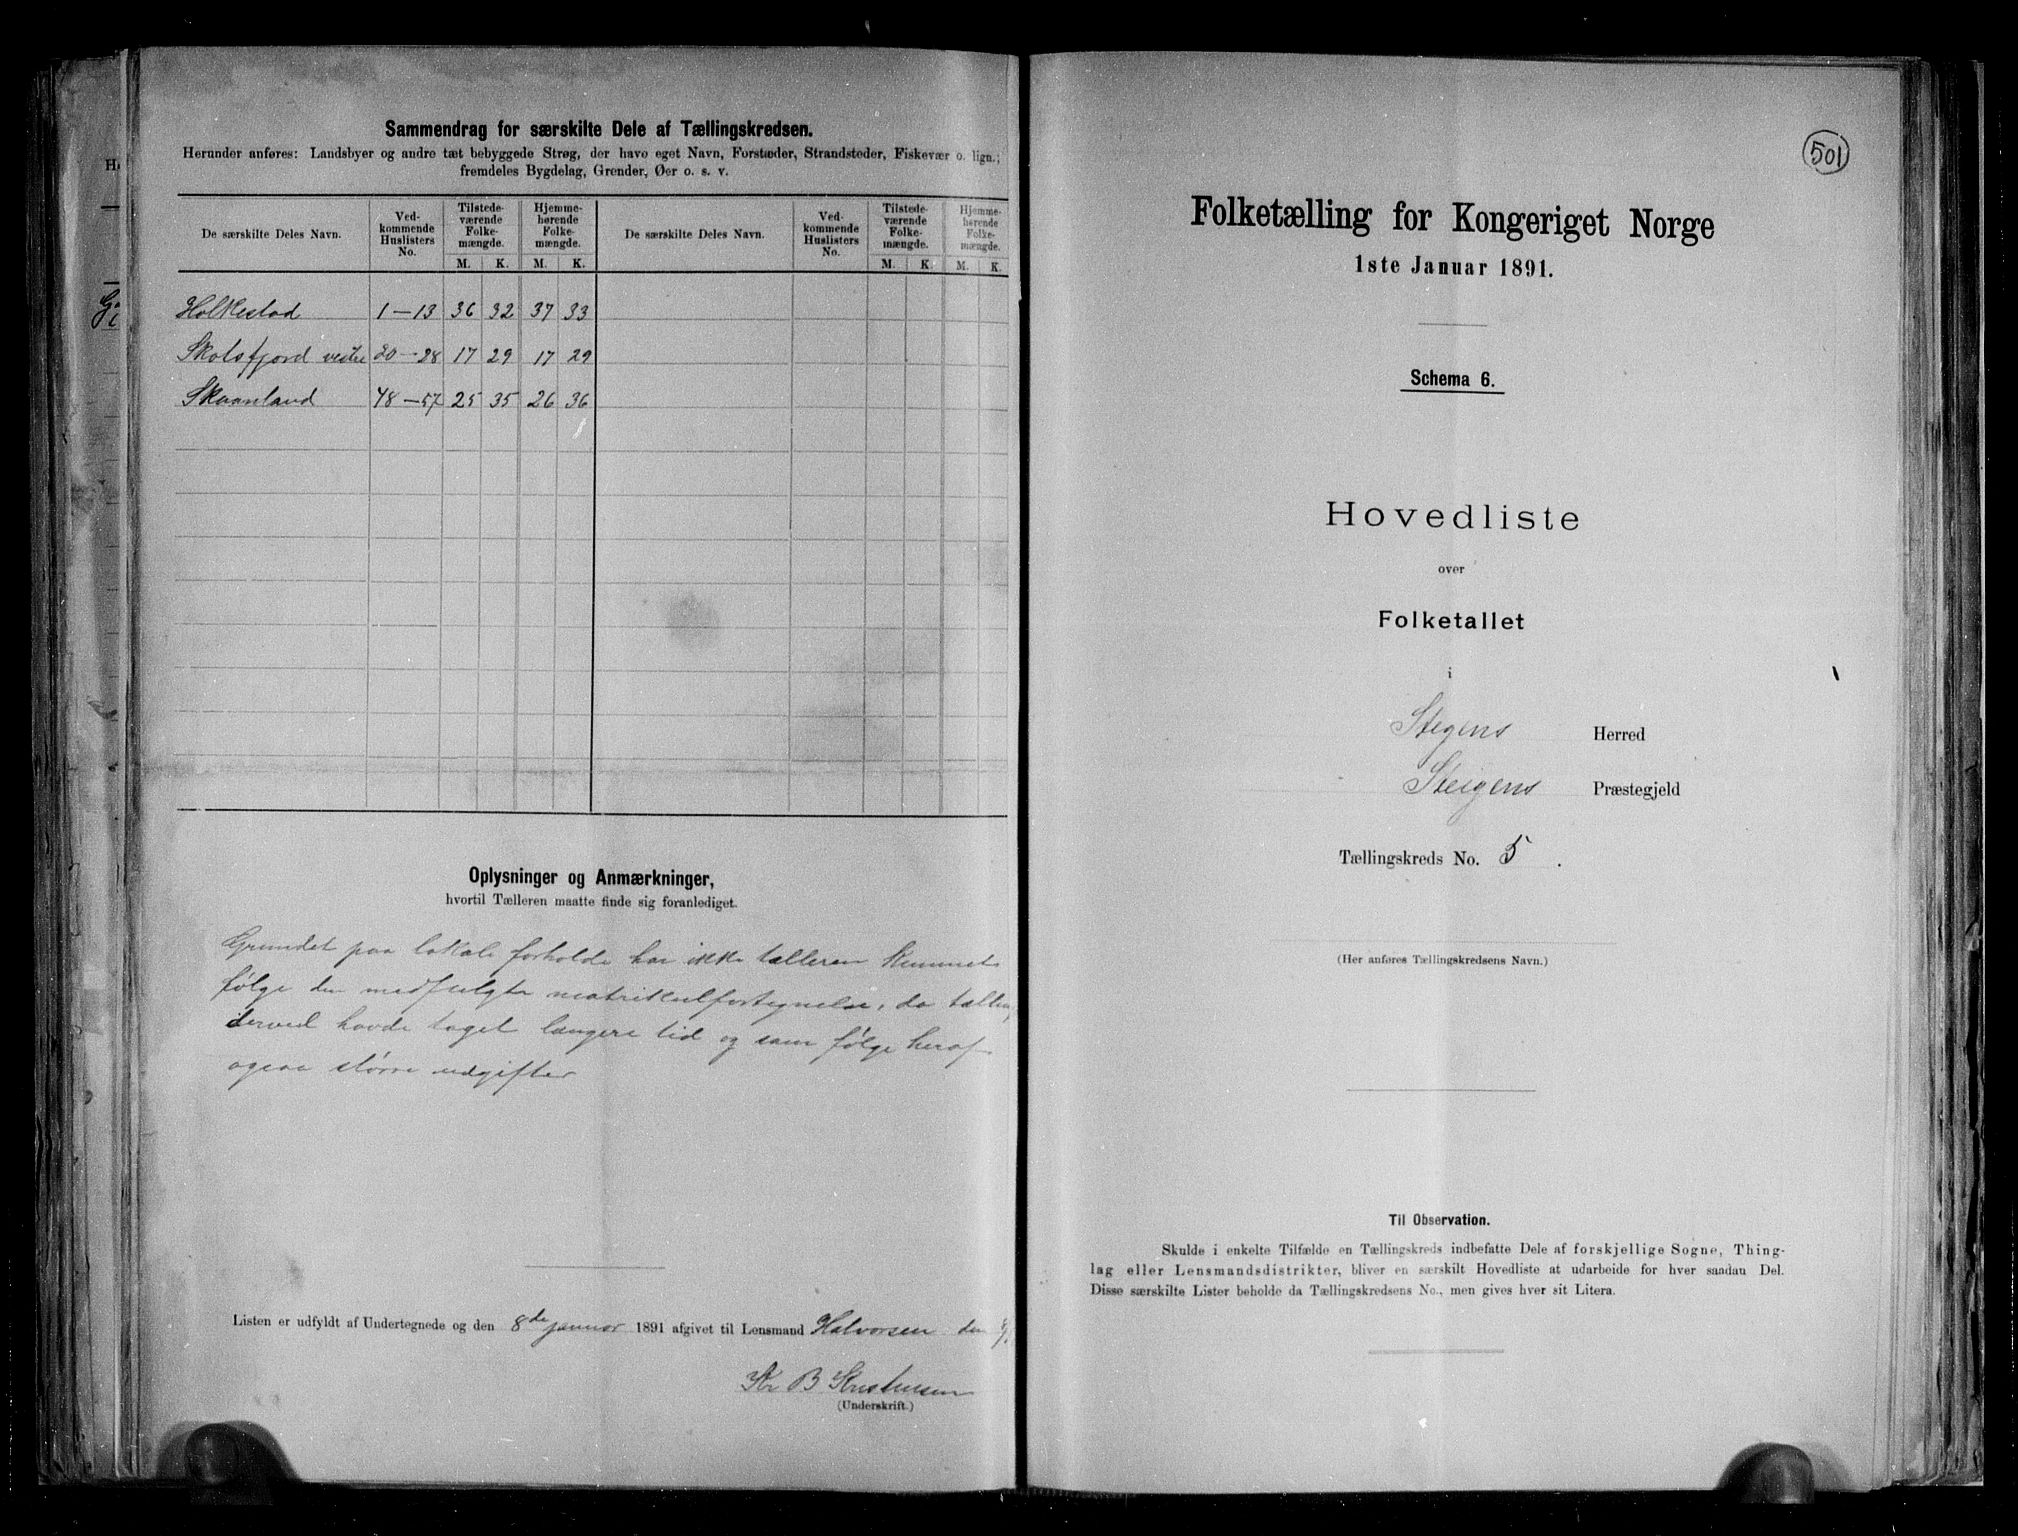 Sammendrag for særskilte Dele af Tællingskredsen.
Herunder anføres: Landsbyer og andre tæt bebyggede Strøg, der have eget Navn, Forstæder, Strandsteder, Fiskevær o. lign.;
fremdeles Bygdelag, Grender, Øer o. s. v.
De særskilte Deles Navn. Ved-kommende Huslisters No. Tilstede-værende Folke-mængde. Hjemme-hørende Folke-mængde. De særskilte Deles Navn. Ved-kommende Huslisters No. Tilstede-værende Folke-mængde. Hjemme-hørende Folke-mængde.
M. K. M. K. M. K. M. K.
Holkestad 1-13 36 32 37 33
Skotsfjord vestre 20-28 17 29 17 29
Skaanland 48-57 25 35 26 36
Oplysninger og Anmærkninger,
hvortil Tælleren maatte finde sig foranlediget.
Grundet paa lokale forholde har ikke tælleren kunnet
følge den medfulgte matrikulfortegnelse, da
derved havde taget længere tid og som følge heraf
ogsaa større udgifter
Listen er udfyldt af Undertegnede og den 8de januar 1891 afgivet til Lensmand Halvorsen den
Kr B Kristensen
(Underskrift.)
501
Folketælling for Kongeriget Norge
1ste Januar 1891.
Schema 6.
Hovedliste
over
Folketallet
i
Stegens Herred
Steigens Præstegjeld
Tællingskreds No. 5.
(Her anføres Tællingskredsens Navn.)
Til Observation.
Skulde i enkelte Tilfælde en Tællingskreds indbefatte Dele af forskjellige Sogne, Thing-
lag eller Lensmandsdistrikter, bliver en særskilt Hovedliste at udarbeide for hver saadan Del.
Disse særskilte Lister beholde da Tællingskredsens No., men gives hver sit Litera.